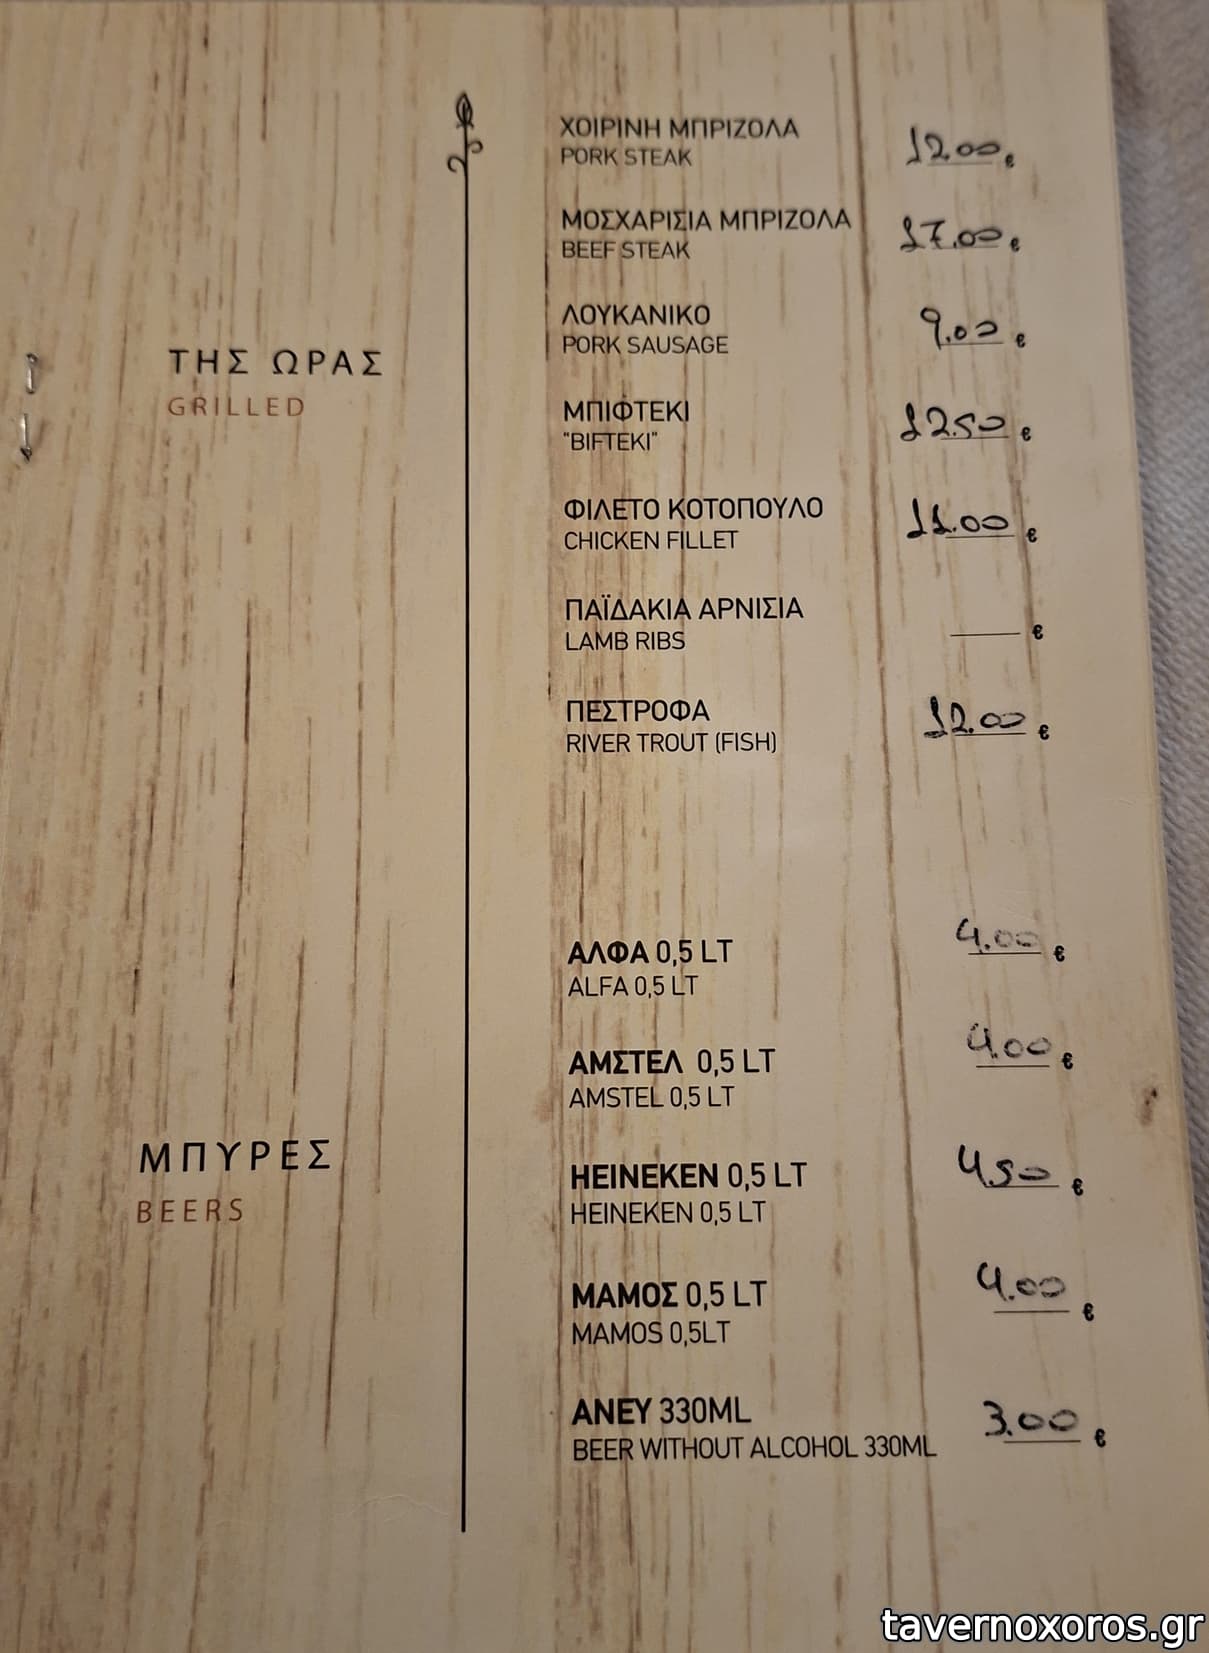 ΤΗΣ ΩΡΑΣ
GRILLED
ΧΟΙΡΙΝΗ ΜΠΡΙΖΟΛΑ 12.00 €
PORK STEAK
ΜΟΣΧΑΡΙΣΙΑ ΜΠΡΙΖΟΛΑ 17.00 €
BEEF STEAK
ΛΟΥΚΑΝΙΚΟ 9.00 €
PORK SAUSAGE
ΜΠΙΦΤΕΚΙ 12.50 €
"BIFTEKI"
ΦΙΛΕΤΟ ΚΟΤΟΠΟΥΛΟ 11.00 €
CHICKEN FILLET
ΠΑΪΔΑΚΙΑ ΑΡΝΙΣΙΑ €
LAMB RIBS
ΠΕΣΤΡΟΦΑ 12.00 €
RIVER TROUT (FISH)
ΜΠΥΡΕΣ
BEERS
ΑΛΦΑ 0,5 LT 4.00 €
ALFA 0,5 LT
ΑΜΣΤΕΛ 0,5 LT 4.00 €
AMSTEL 0,5 LT
HEINEKEN 0,5 LT 4.50 €
HEINEKEN 0,5 LT
ΜΑΜΟΣ 0,5 LT 4.00 €
MAMOS 0,5LT
ΑΝΕΥ 330ML 3.00 €
BEER WITHOUT ALCOHOL 330ML
tavernoxoros.gr